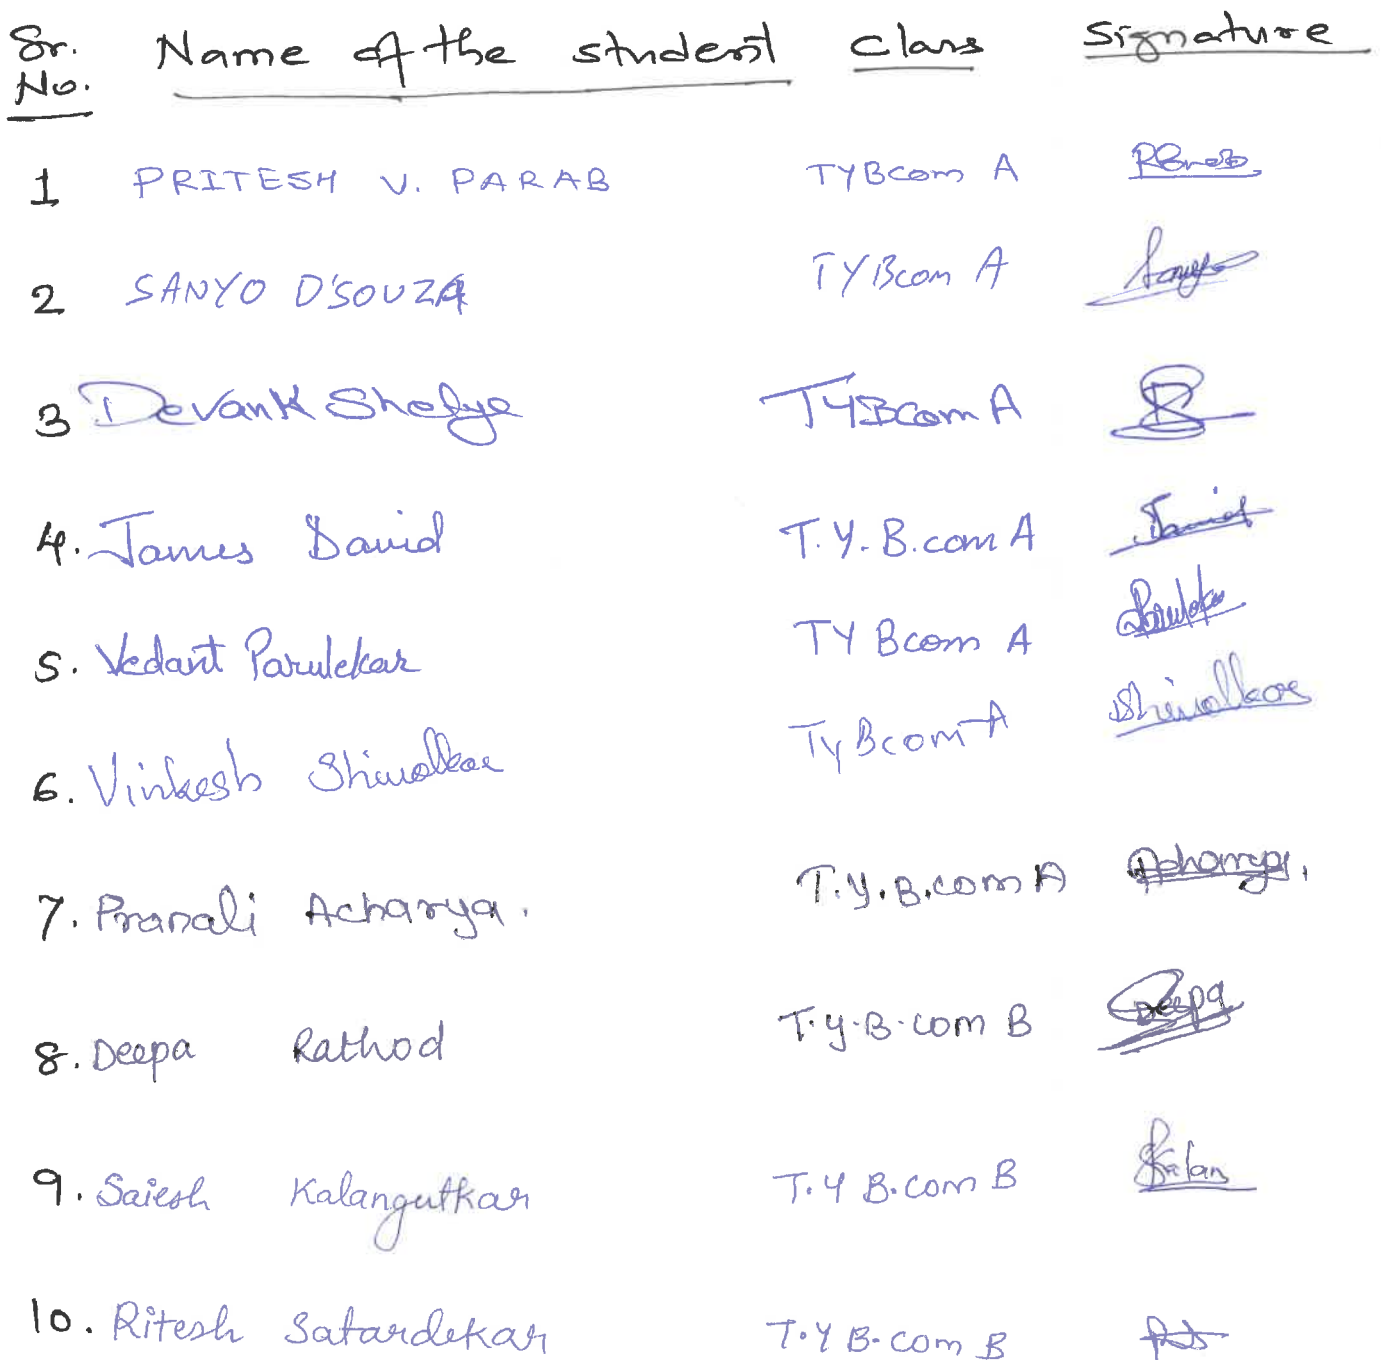 Sr. No. Name of the student Class Signature
1 PRITESH V. PARAB TYBcom A
2 SANYO D'SOUZA TYBcom A Sanyo
3 Devank Shelye TYBcom A
4. James David T.Y.B.com A David
5. Vedant Parulekar TY Bcom A
6. Vinkesh Shivolkar TyBcom A Shivolkar
7. Pranali Acharya. T.Y.B.com A Acharya.
8. Deepa Rathod T.Y.B.com B Deepa
9. Saiesh Kalangutkar T.Y B.com B
10. Ritesh Satardekar T.Y B.com B